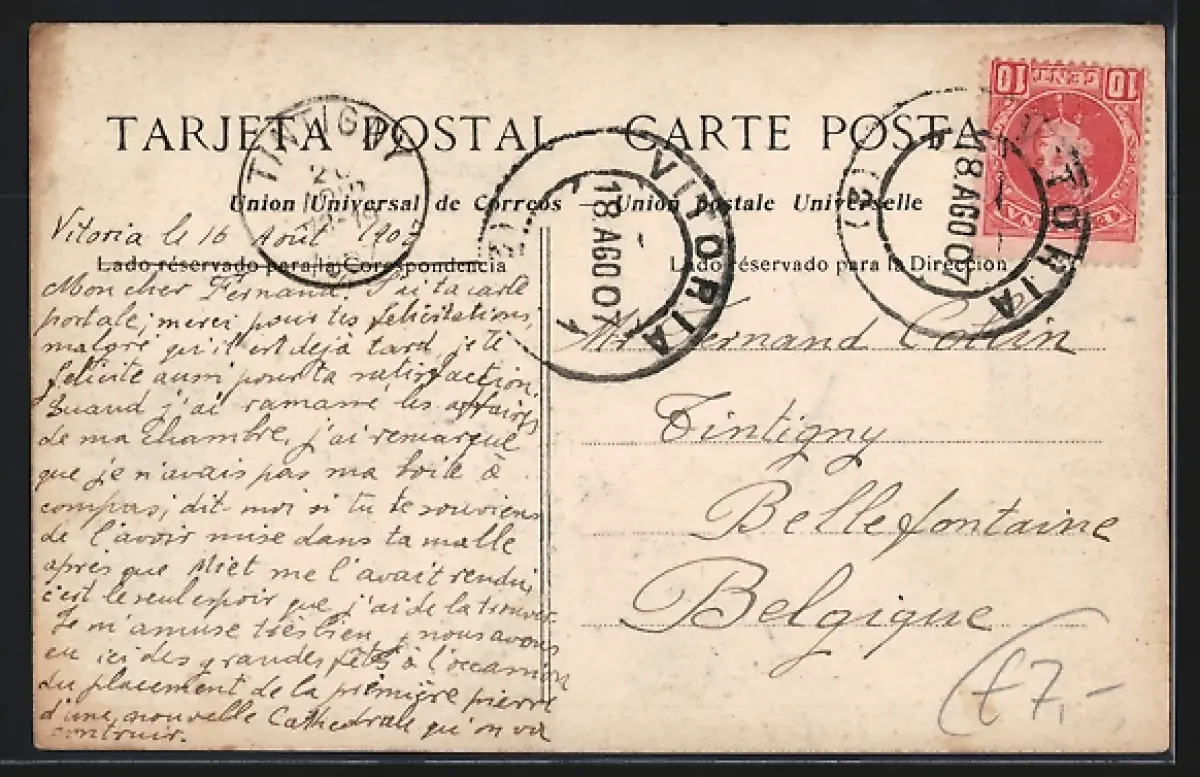 TARJETA POSTAL CARTE POSTA
Union Universal de Correos — Union Postale Universelle
Lado réservado para la Correspondencia
Lado réservado para la Direccion
TINTIGNY
20
VITORIA
18 AGO 07
(2)
VITORIA
18 AGO 07
(2)
10 CENT 10
Vitoria le 16 Août 1907
Mon cher Fernand. J'ai ta carte
portale; merci pour tes félicitations,
malgré qu'il est déjà tard, je te
félicite aussi pour ta satisfaction.
Quand j'ai ramassé les affaires
de ma chambre, j'ai remarqué
que je n'avais pas ma boite à
compas; dit-moi si tu te souviens
de l'avoir mise dans ta malle
après que Miet me l'avait rendu,
c'est le seul espoir que j'ai de la trouver.
Je m'amuse très bien, nous avons
eu ici des grandes fêtes à l'occasion
du placement de la première pierre
d'une nouvelle Cathedrale qu'on va
contruir.
Mr Fernand
Tintigny
Bellefontaine
Belgique
£7,-